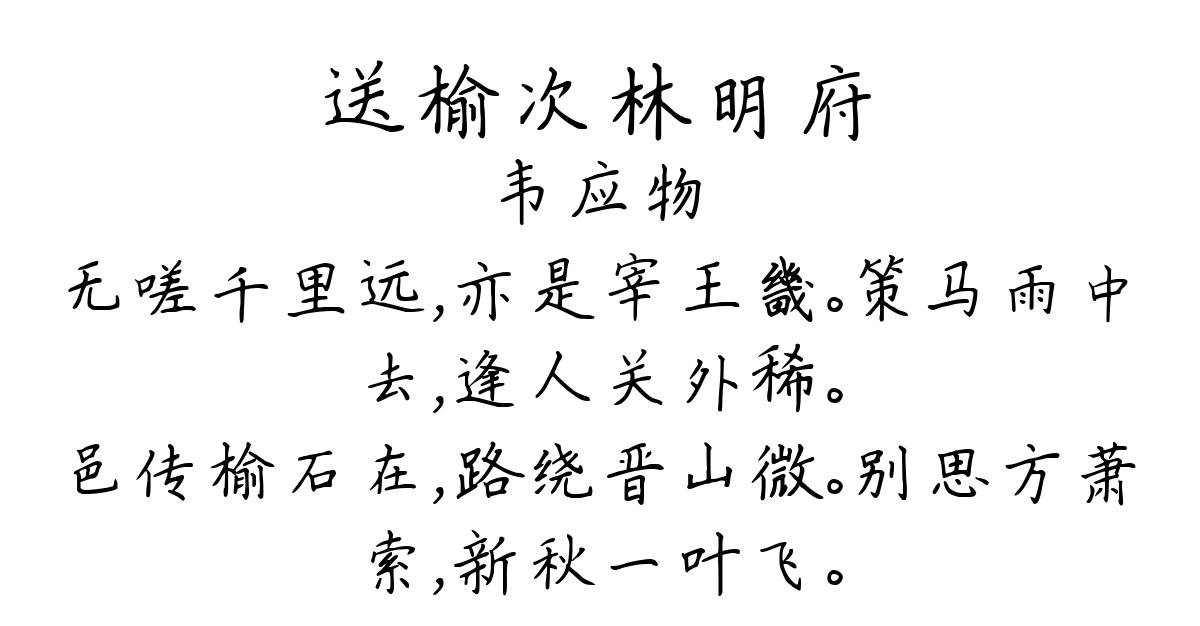 送榆次林明府
韦应物
无嗟千里远,亦是宰王畿。策马雨中
去,逢人关外稀。
邑传榆石在,路绕晋山微。别思方萧
索,新秋一叶飞。